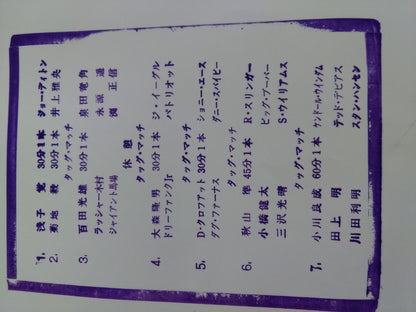 1. 浅子 覚 30分1本 ジョー・ディトン
2. 菊地 毅 30分1本 井上雅央
タッグ・マッチ
3. 百田光雄 30分1本 泉田竜角
ラッシャー木村 永源 遥
ジャイアント馬場 渕 正信
休憩
タッグ・マッチ
4. 大森隆男 30分1本 ジ・イーグル
ドリーファンクJr パトリオット
タッグ・マッチ
5. D・クロファット 30分1本 ジョニー・エース
ダグ・ファーナス ダニー・スパイビー
タッグ・マッチ
6. 秋山 準 45分1本 R・スリンガー
小橋健太 ビッグ・ブーバー
三沢光晴 S・ウイリアムス
タッグ・マッチ
7. 小川良成 60分1本 ケンドール・ウインダム
田上 明 テッド・デビアス
川田利明 スタン・ハンセン